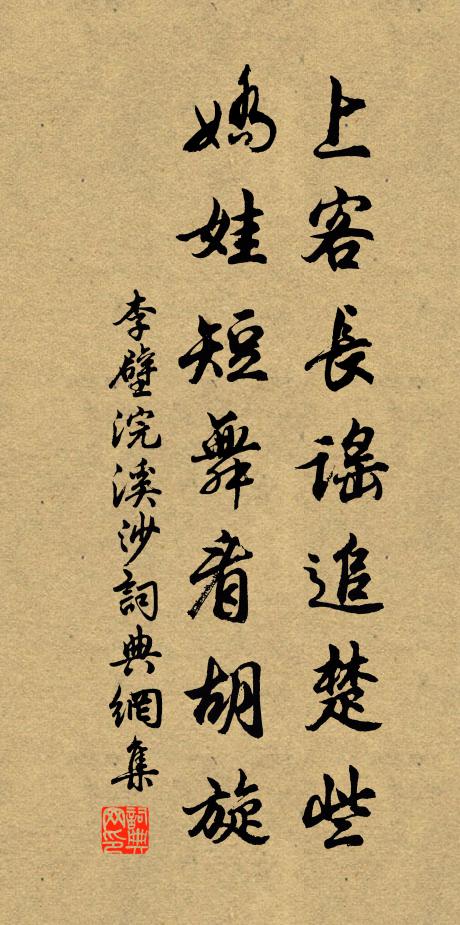 上客長謠追楚些
嬌娃短舞看胡旋
李壁浣溪沙詞典網集
詞典網印